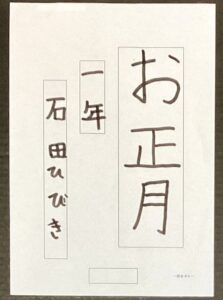 お正月
一年
石田ひびき